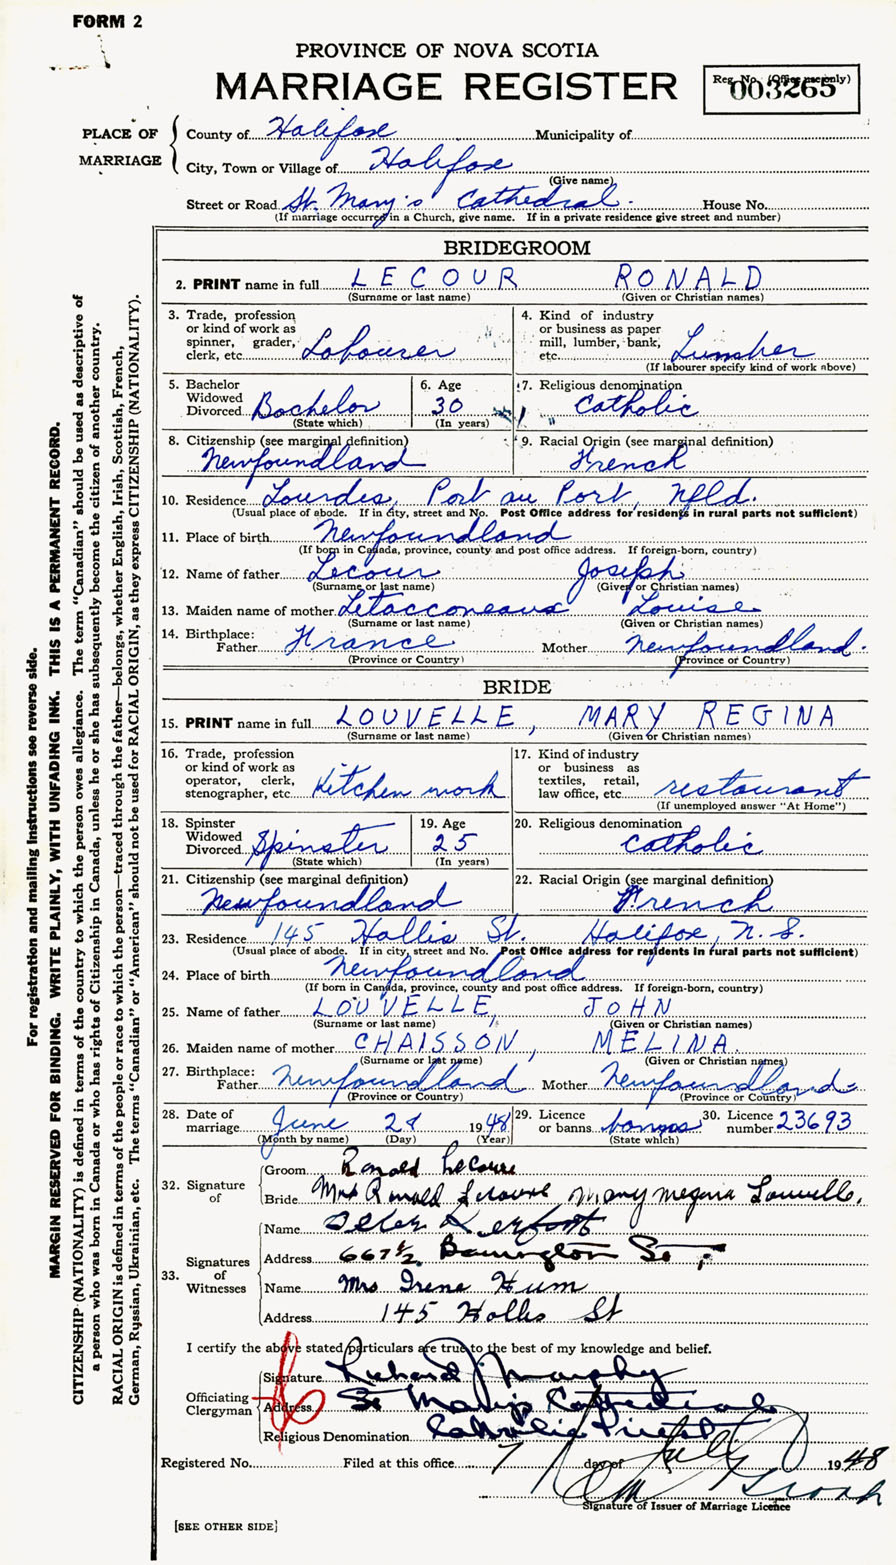 FORM 2
PROVINCE OF NOVA SCOTIA
MARRIAGE REGISTER
Reg. No. (Office use only)
003265
PLACE OF MARRIAGE
County of Halifax Municipality of
City, Town or Village of Halifax
(Give name)
Street or Road St. Mary's Cathedral. House No.
(If marriage occurred in a Church, give name. If in a private residence give street and number)
BRIDEGROOM
2. PRINT name in full LECOUR RONALD
(Surname or last name) (Given or Christian names)
3. Trade, profession or kind of work as spinner, grader, clerk, etc. Labourer
4. Kind of industry or business as paper mill, lumber, bank, etc. Lumber
(If labourer specify kind of work above)
5. Bachelor Widowed Divorced Bachelor
(State which)
6. Age 30
(In years)
7. Religious denomination Catholic
8. Citizenship (see marginal definition) Newfoundland
9. Racial Origin (see marginal definition) French
10. Residence Lourdes, Port au Port, Nfld.
(Usual place of abode. If in city, street and No. Post Office address for residents in rural parts not sufficient)
11. Place of birth Newfoundland
(If born in Canada, province, county and post office address. If foreign-born, country)
12. Name of father Lecour Joseph
(Surname or last name) (Given or Christian names)
13. Maiden name of mother Letacconeaux Louise
(Surname or last name) (Given or Christian names)
14. Birthplace: Father France Mother Newfoundland.
(Province or Country) (Province or Country)
BRIDE
15. PRINT name in full LOUVELLE, MARY REGINA
(Surname or last name) (Given or Christian names)
16. Trade, profession or kind of work as operator, clerk, stenographer, etc. Kitchen work
17. Kind of industry or business as textiles, retail, law office, etc. restaurant
(If unemployed answer "At Home")
18. Spinster Widowed Divorced Spinster
(State which)
19. Age 25
(In years)
20. Religious denomination Catholic
21. Citizenship (see marginal definition) Newfoundland
22. Racial Origin (see marginal definition) French
23. Residence 145 Hollis St. Halifax, N.S.
(Usual place of abode. If in city, street and No. Post Office address for residents in rural parts not sufficient)
24. Place of birth Newfoundland
(If born in Canada, province, county and post office address. If foreign-born, country)
25. Name of father LOUVELLE, JOHN
(Surname or last name) (Given or Christian names)
26. Maiden name of mother CHAISSON, MELINA.
(Surname or last name) (Given or Christian names)
27. Birthplace: Father Newfoundland Mother Newfoundland
(Province or Country) (Province or Country)
28. Date of marriage June 28 1948
(Month by name) (Day) (Year)
29. Licence or banns banns
(State which)
30. Licence number 23693
32. Signature of
Groom Ronald Lecour
Bride Mrs Ronald Lecoure Mary Louvelle.
33. Signatures of Witnesses
Name Peter
Address 667½ Barrington St
Name Mrs Irene Hum
Address 145 Hollis St
I certify the above stated particulars are true to the best of my knowledge and belief.
Officiating Clergyman
Signature Richard J. Murphy
Address St Mary's Cathedral
Religious Denomination Catholic Priest
Registered No. Filed at this office 7 day of July 1948
Signature of Issuer of Marriage Licence
[SEE OTHER SIDE]
For registration and mailing instructions see reverse side.
MARGIN RESERVED FOR BINDING. WRITE PLAINLY, WITH UNFADING INK. THIS IS A PERMANENT RECORD.
CITIZENSHIP (NATIONALITY) is defined in terms of the country to which the person owes allegiance. The term "Canadian" should be used as descriptive of
a person who was born in Canada or who has rights of Citizenship in Canada, unless he or she has subsequently become the citizen of another country.
RACIAL ORIGIN is defined in terms of the people or race to which the person—traced through the father—belongs, whether English, Irish, Scottish, French,
German, Russian, Ukrainian, etc. The terms "Canadian" or "American" should not be used for RACIAL ORIGIN, as they express CITIZENSHIP (NATIONALITY).